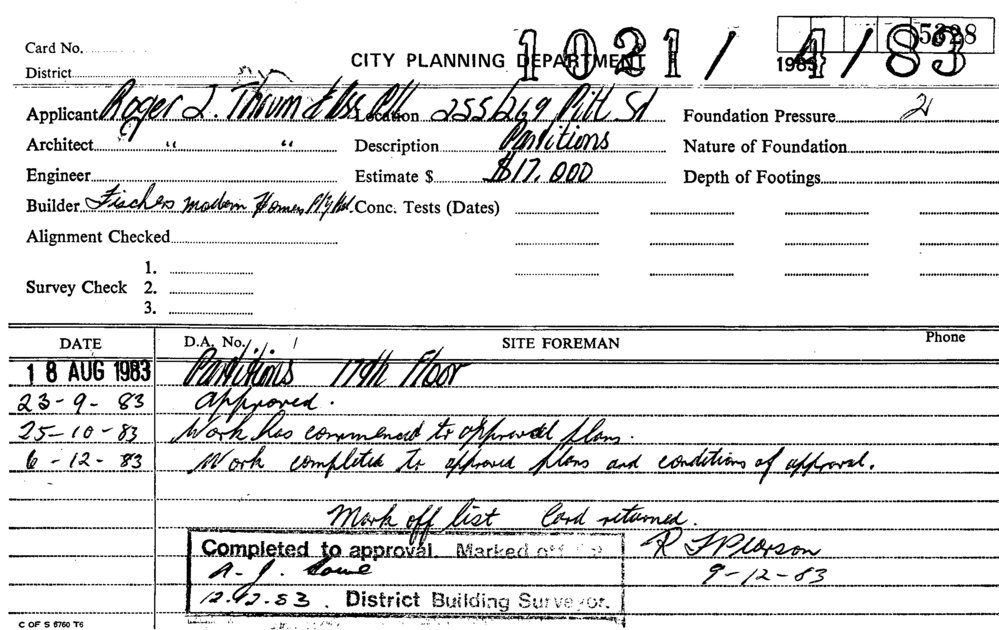 5328
Card No.
CITY PLANNING DEPARTMENT 1021/4/83
1983
District
Applicant Roger J. Thrum & Ass P/L Location 255/269 Pitt St Foundation Pressure 21
Architect " " Description Partitions Nature of Foundation
Engineer Estimate $ $17,000 Depth of Footings
Builder Fischers modern Homes P/y Ltd. Conc. Tests (Dates)
Alignment Checked
1.
Survey Check 2.
3.
DATE D.A. No. / / SITE FOREMAN Phone
18 AUG 1983 Partitions 17th Floor
23-9-83 approved.
25-10-83 Work has commenced to approved plans.
6-12-83 Work completed to approved plans and conditions of approval.
Mark off list Card returned.
Completed to approval. Marked off R F Pearson
A. J. 9-12-83
12.12.83. District Building Surveyor.
C OF S 6760 T6